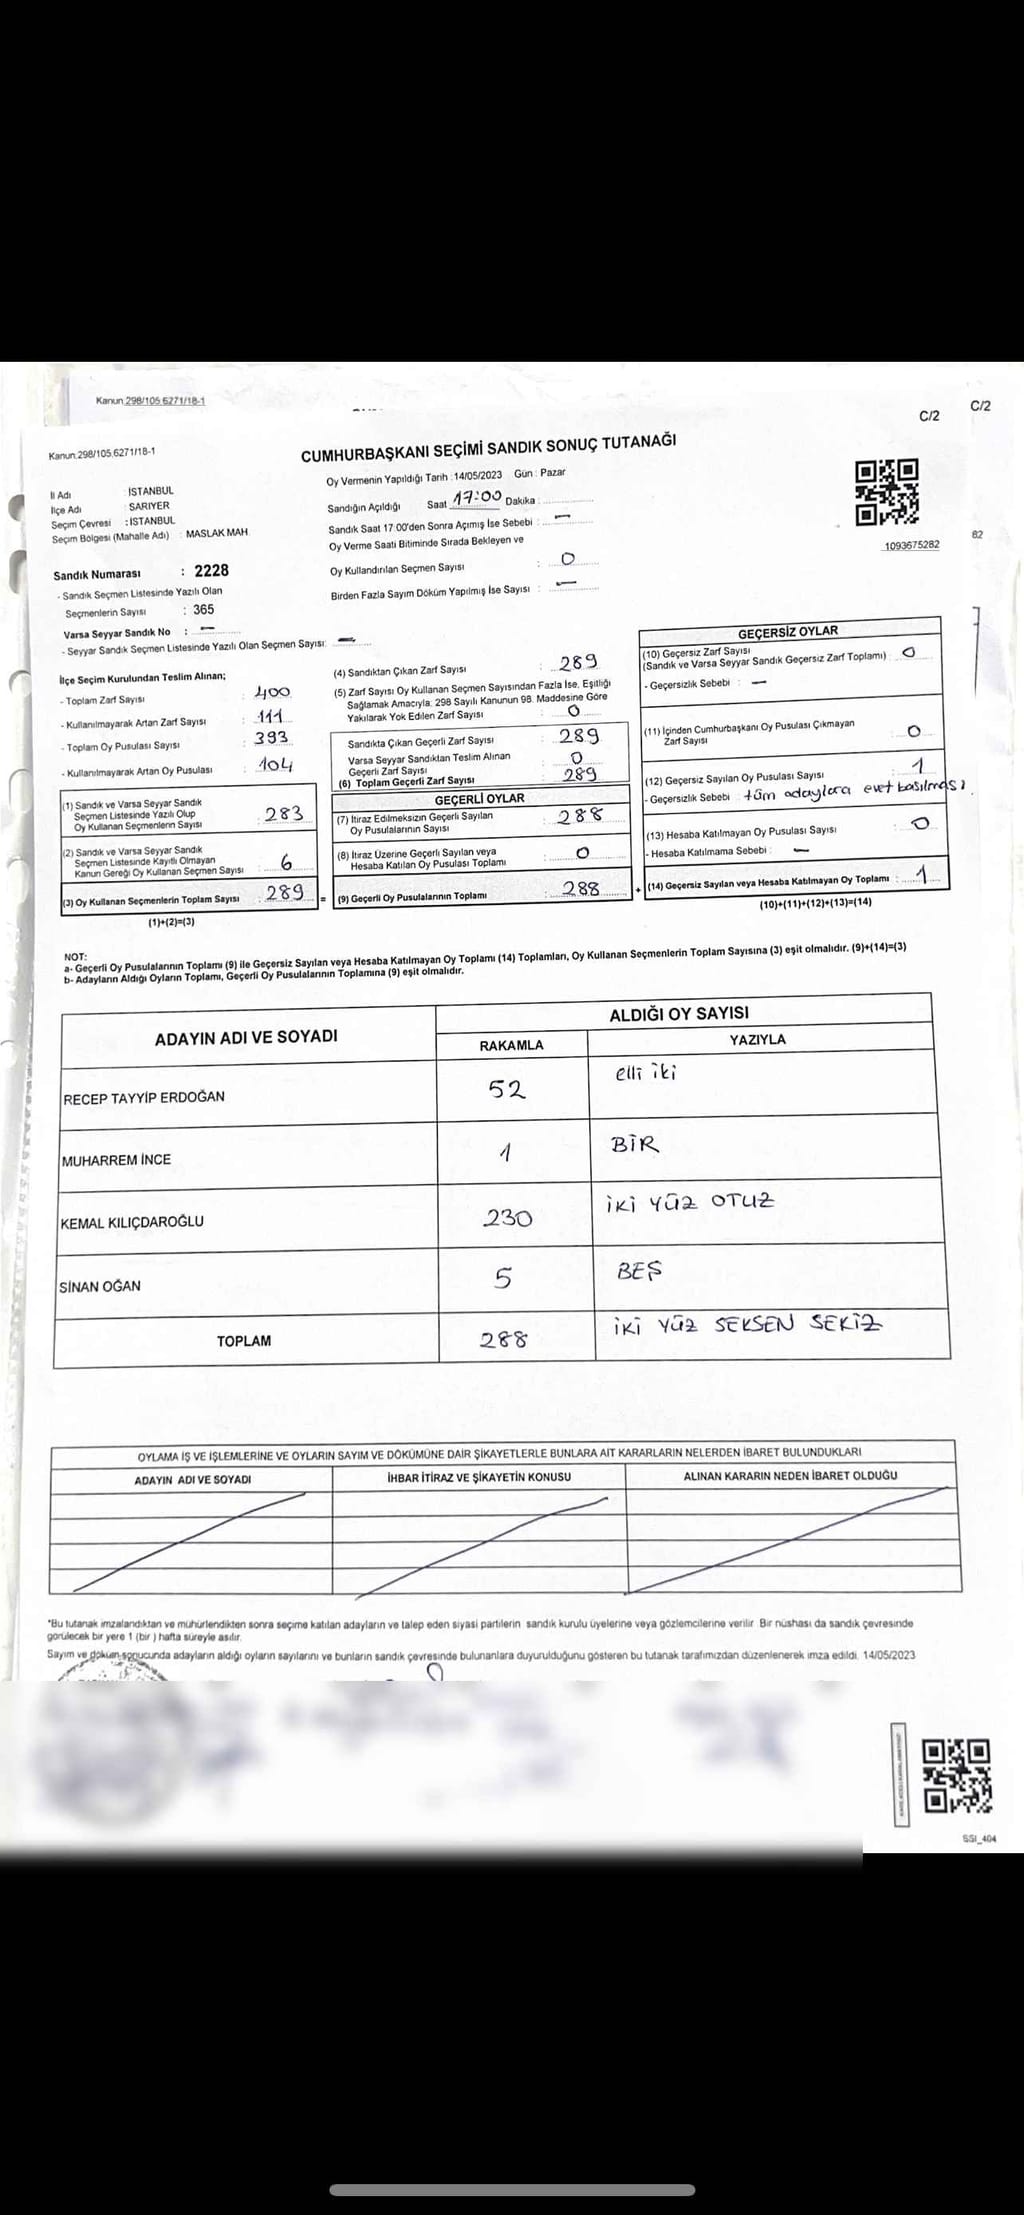 Kanun.298/105.6271/18-1
C/2
C/2
Kanun.298/105.6271/18-1
CUMHURBAŞKANI SEÇİMİ SANDIK SONUÇ TUTANAĞI
İl Adı : İSTANBUL
İlçe Adı : SARIYER
Seçim Çevresi : İSTANBUL
Seçim Bölgesi (Mahalle Adı) : MASLAK MAH.
Oy Vermenin Yapıldığı Tarih : 14/05/2023 Gün : Pazar
Sandığın Açıldığı Saat 17:00 Dakika :
Sandık Saat 17:00'den Sonra Açımış İse Sebebi : —
Oy Verme Saati Bitiminde Sırada Bekleyen ve
Oy Kullandırılan Seçmen Sayısı : 0
Birden Fazla Sayım Döküm Yapılmış İse Sayısı : —
1093675282
82
Sandık Numarası : 2228
- Sandık Seçmen Listesinde Yazılı Olan
Seçmenlerin Sayısı : 365
Varsa Seyyar Sandık No : —
- Seyyar Sandık Seçmen Listesinde Yazılı Olan Seçmen Sayısı: —
İlçe Seçim Kurulundan Teslim Alınan;
- Toplam Zarf Sayısı : 400
- Kullanılmayarak Artan Zarf Sayısı : 111
- Toplam Oy Pusulası Sayısı : 393
- Kullanılmayarak Artan Oy Pusulası : 104
(1) Sandık ve Varsa Seyyar Sandık
Seçmen Listesinde Yazılı Olup
Oy Kullanan Seçmenlerin Sayısı : 283
(2) Sandık ve Varsa Seyyar Sandık
Seçmen Listesinde Kayıtlı Olmayan
Kanun Gereği Oy Kullanan Seçmen Sayısı : 6
(3) Oy Kullanan Seçmenlerin Toplam Sayısı : 289 =
(1)+(2)=(3)
(4) Sandıktan Çıkan Zarf Sayısı : 289
(5) Zarf Sayısı Oy Kullanan Seçmen Sayısından Fazla İse, Eşitliği
Sağlamak Amacıyla; 298 Sayılı Kanunun 98. Maddesine Göre
Yakılarak Yok Edilen Zarf Sayısı : 0
Sandıkta Çıkan Geçerli Zarf Sayısı : 289
Varsa Seyyar Sandıktan Teslim Alınan
Geçerli Zarf Sayısı : 0
(6) Toplam Geçerli Zarf Sayısı : 289
GEÇERLİ OYLAR
(7) İtiraz Edilmeksizin Geçerli Sayılan
Oy Pusulalarının Sayısı : 288
(8) İtiraz Üzerine Geçerli Sayılan veya
Hesaba Katılan Oy Pusulası Toplamı : 0
(9) Geçerli Oy Pusulalarının Toplamı : 288 +
GEÇERSİZ OYLAR
(10) Geçersiz Zarf Sayısı
(Sandık ve Varsa Seyyar Sandık Geçersiz Zarf Toplamı) : 0
- Geçersizlik Sebebi : —
(11) İçinden Cumhurbaşkanı Oy Pusulası Çıkmayan
Zarf Sayısı : 0
(12) Geçersiz Sayılan Oy Pusulası Sayısı : 1
- Geçersizlik Sebebi : tüm adaylara evet basılması
(13) Hesaba Katılmayan Oy Pusulası Sayısı : 0
- Hesaba Katılmama Sebebi : —
(14) Geçersiz Sayılan veya Hesaba Katılmayan Oy Toplamı : 1
(10)+(11)+(12)+(13)=(14)
NOT:
a- Geçerli Oy Pusulalarının Toplamı (9) ile Geçersiz Sayılan veya Hesaba Katılmayan Oy Toplamı (14) Toplamları, Oy Kullanan Seçmenlerin Toplam Sayısına (3) eşit olmalıdır. (9)+(14)=(3)
b- Adayların Aldığı Oyların Toplamı, Geçerli Oy Pusulalarının Toplamına (9) eşit olmalıdır.
ADAYIN ADI VE SOYADI
ALDIĞI OY SAYISI
RAKAMLA YAZIYLA
RECEP TAYYİP ERDOĞAN 52 elli iki
MUHARREM İNCE 1 BİR
KEMAL KILIÇDAROĞLU 230 İKİ YÜZ OTUZ
SİNAN OĞAN 5 BEŞ
TOPLAM 288 İKİ YÜZ SEKSEN SEKİZ
OYLAMA İŞ VE İŞLEMLERİNE VE OYLARIN SAYIM VE DÖKÜMÜNE DAİR ŞİKAYETLERLE BUNLARA AİT KARARLARIN NELERDEN İBARET BULUNDUKLARI
ADAYIN ADI VE SOYADI
İHBAR İTİRAZ VE ŞİKAYETİN KONUSU
ALINAN KARARIN NEDEN İBARET OLDUĞU
*Bu tutanak imzalandıktan ve mühürlendikten sonra seçime katılan adayların ve talep eden siyasi partilerin sandık kurulu üyelerine veya gözlemcilerine verilir. Bir nüshası da sandık çevresinde
görülecek bir yere 1 (bir ) hafta süreyle asılır.
Sayım ve döküm sonucunda adayların aldığı oyların sayılarını ve bunların sandık çevresinde bulunanlara duyurulduğunu gösteren bu tutanak tarafımızdan düzenlenerek imza edildi. 14/05/2023
SSI_404